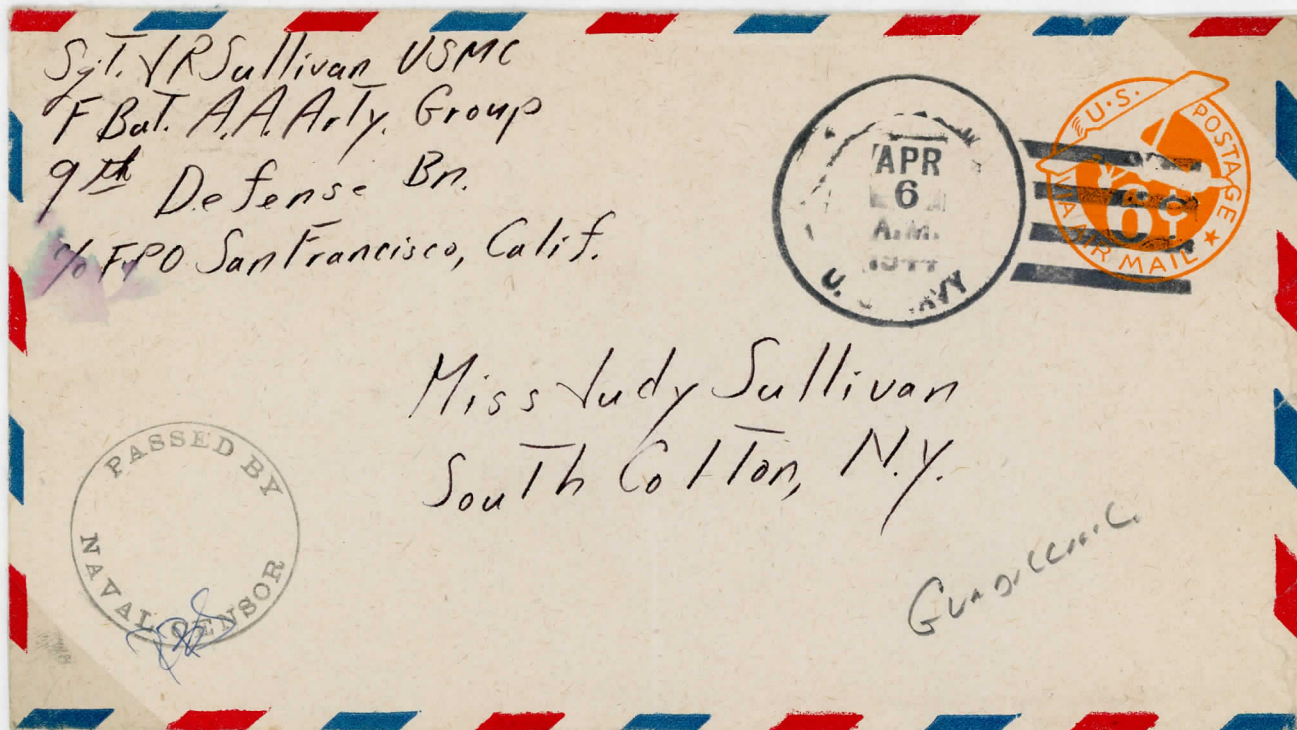 Sgt. JR Sullivan USMC
F Bat. A.A.Arty. Group
9th Defense Bn.
c/o FPO San Francisco, Calif.
APR
6
A.M.
1944
U. S. NAVY
U.S. POSTAGE
6¢
VIA AIR MAIL
Miss Judy Sullivan
South Colton, N.Y.
PASSED BY
NAVAL CENSOR